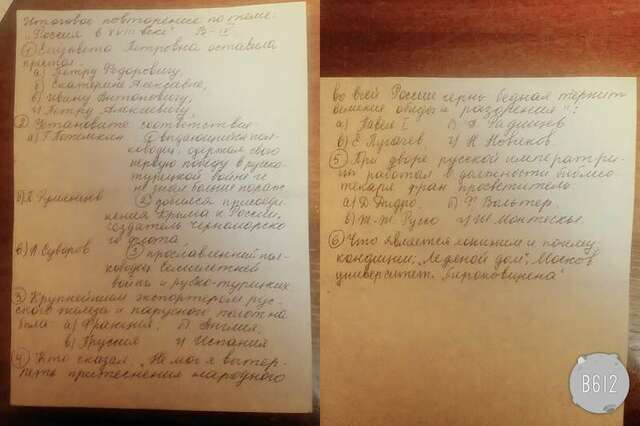 Итоговое повторение по теме:
"Россия в XVIII веке" В-IV
① Елизавета Петровна оставила
престол
а) Петру Федоровичу,
б) Екатерине Алексеевне,
в) Ивану Антоновичу,
г) Петру Алексеевичу
② Установите соответствие
а) Г. Потемкин ① выдающийся пол-
ководец, одержал свою
первую победу в русско-
турецкой войне и
не знал больше пораж.
б) П. Румянцев ② добился присоеди-
нения Крыма к России,
создатель черноморско-
го флота
в) А. Суворов ③ прославленный пол-
ководец Семилетней
войны и русско-турецких
③ Крупнейшим экспортером рус-
ского железа и парусного полотна
была а) Франция; б) Англия;
в) Пруссия г) Испания
④ Кто сказал: "Не мог я вытер-
петь притеснения народного
во всей России чернь бедная терпит
великие обиды и разорения"?
а) Павел I б) А. Радищев
в) Е. Пугачев г) Н. Новиков.
⑤ При дворе русской императри-
цы работал в должности библио-
текаря фран. просветитель:
а) Д. Дидро. б) Ф. Вольтер.
в) Ж-Ж. Руссо г) Ш. Монтескье
⑥ Что является лишним и почему
кондиции, "Ледяной дом", Москов.
университет. "бироновщина"
B612